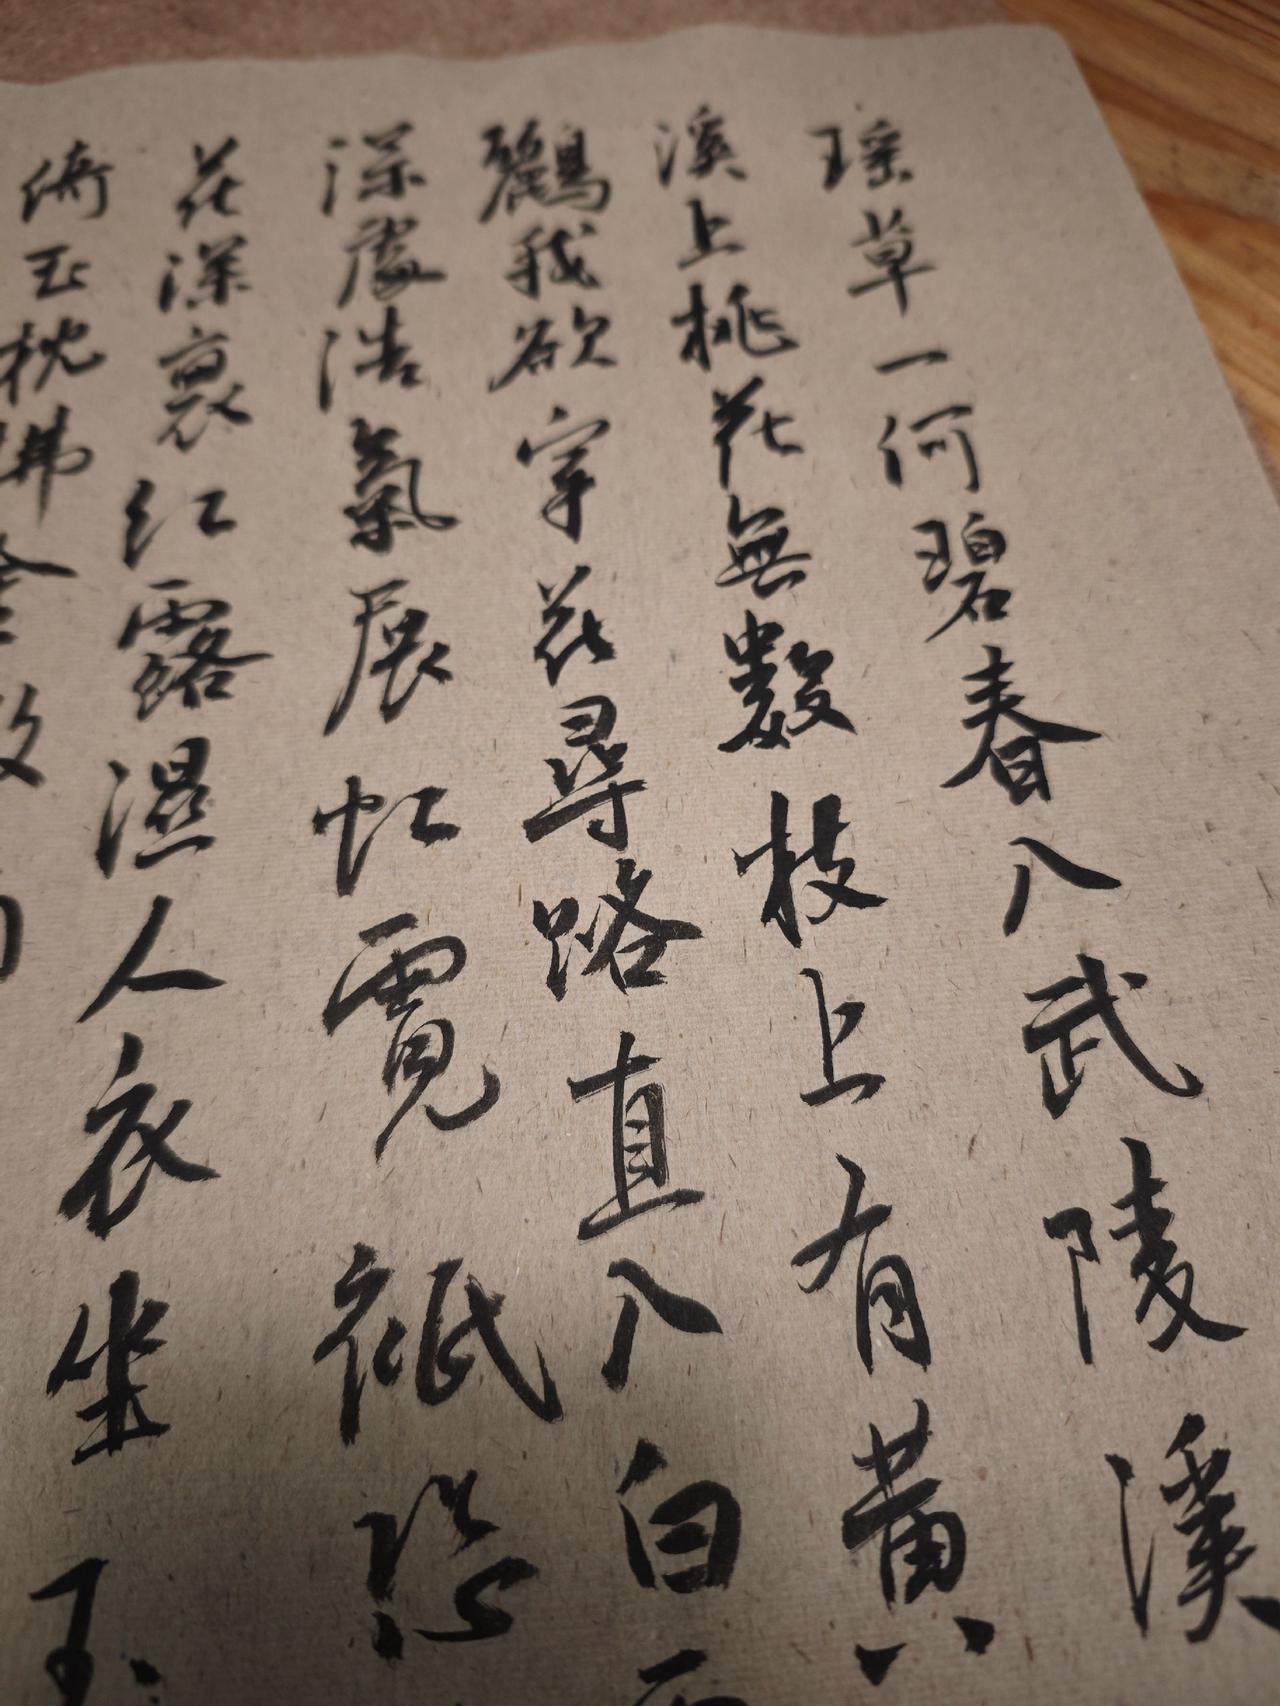 瑶草一何碧春入武陵溪
溪上桃花無數枝上有黃
鸝我欲穿花尋路直入白
深處浩氣展虹霓祇恐
花深裏紅露濕人衣坐玉
倚玉枕拂金徽